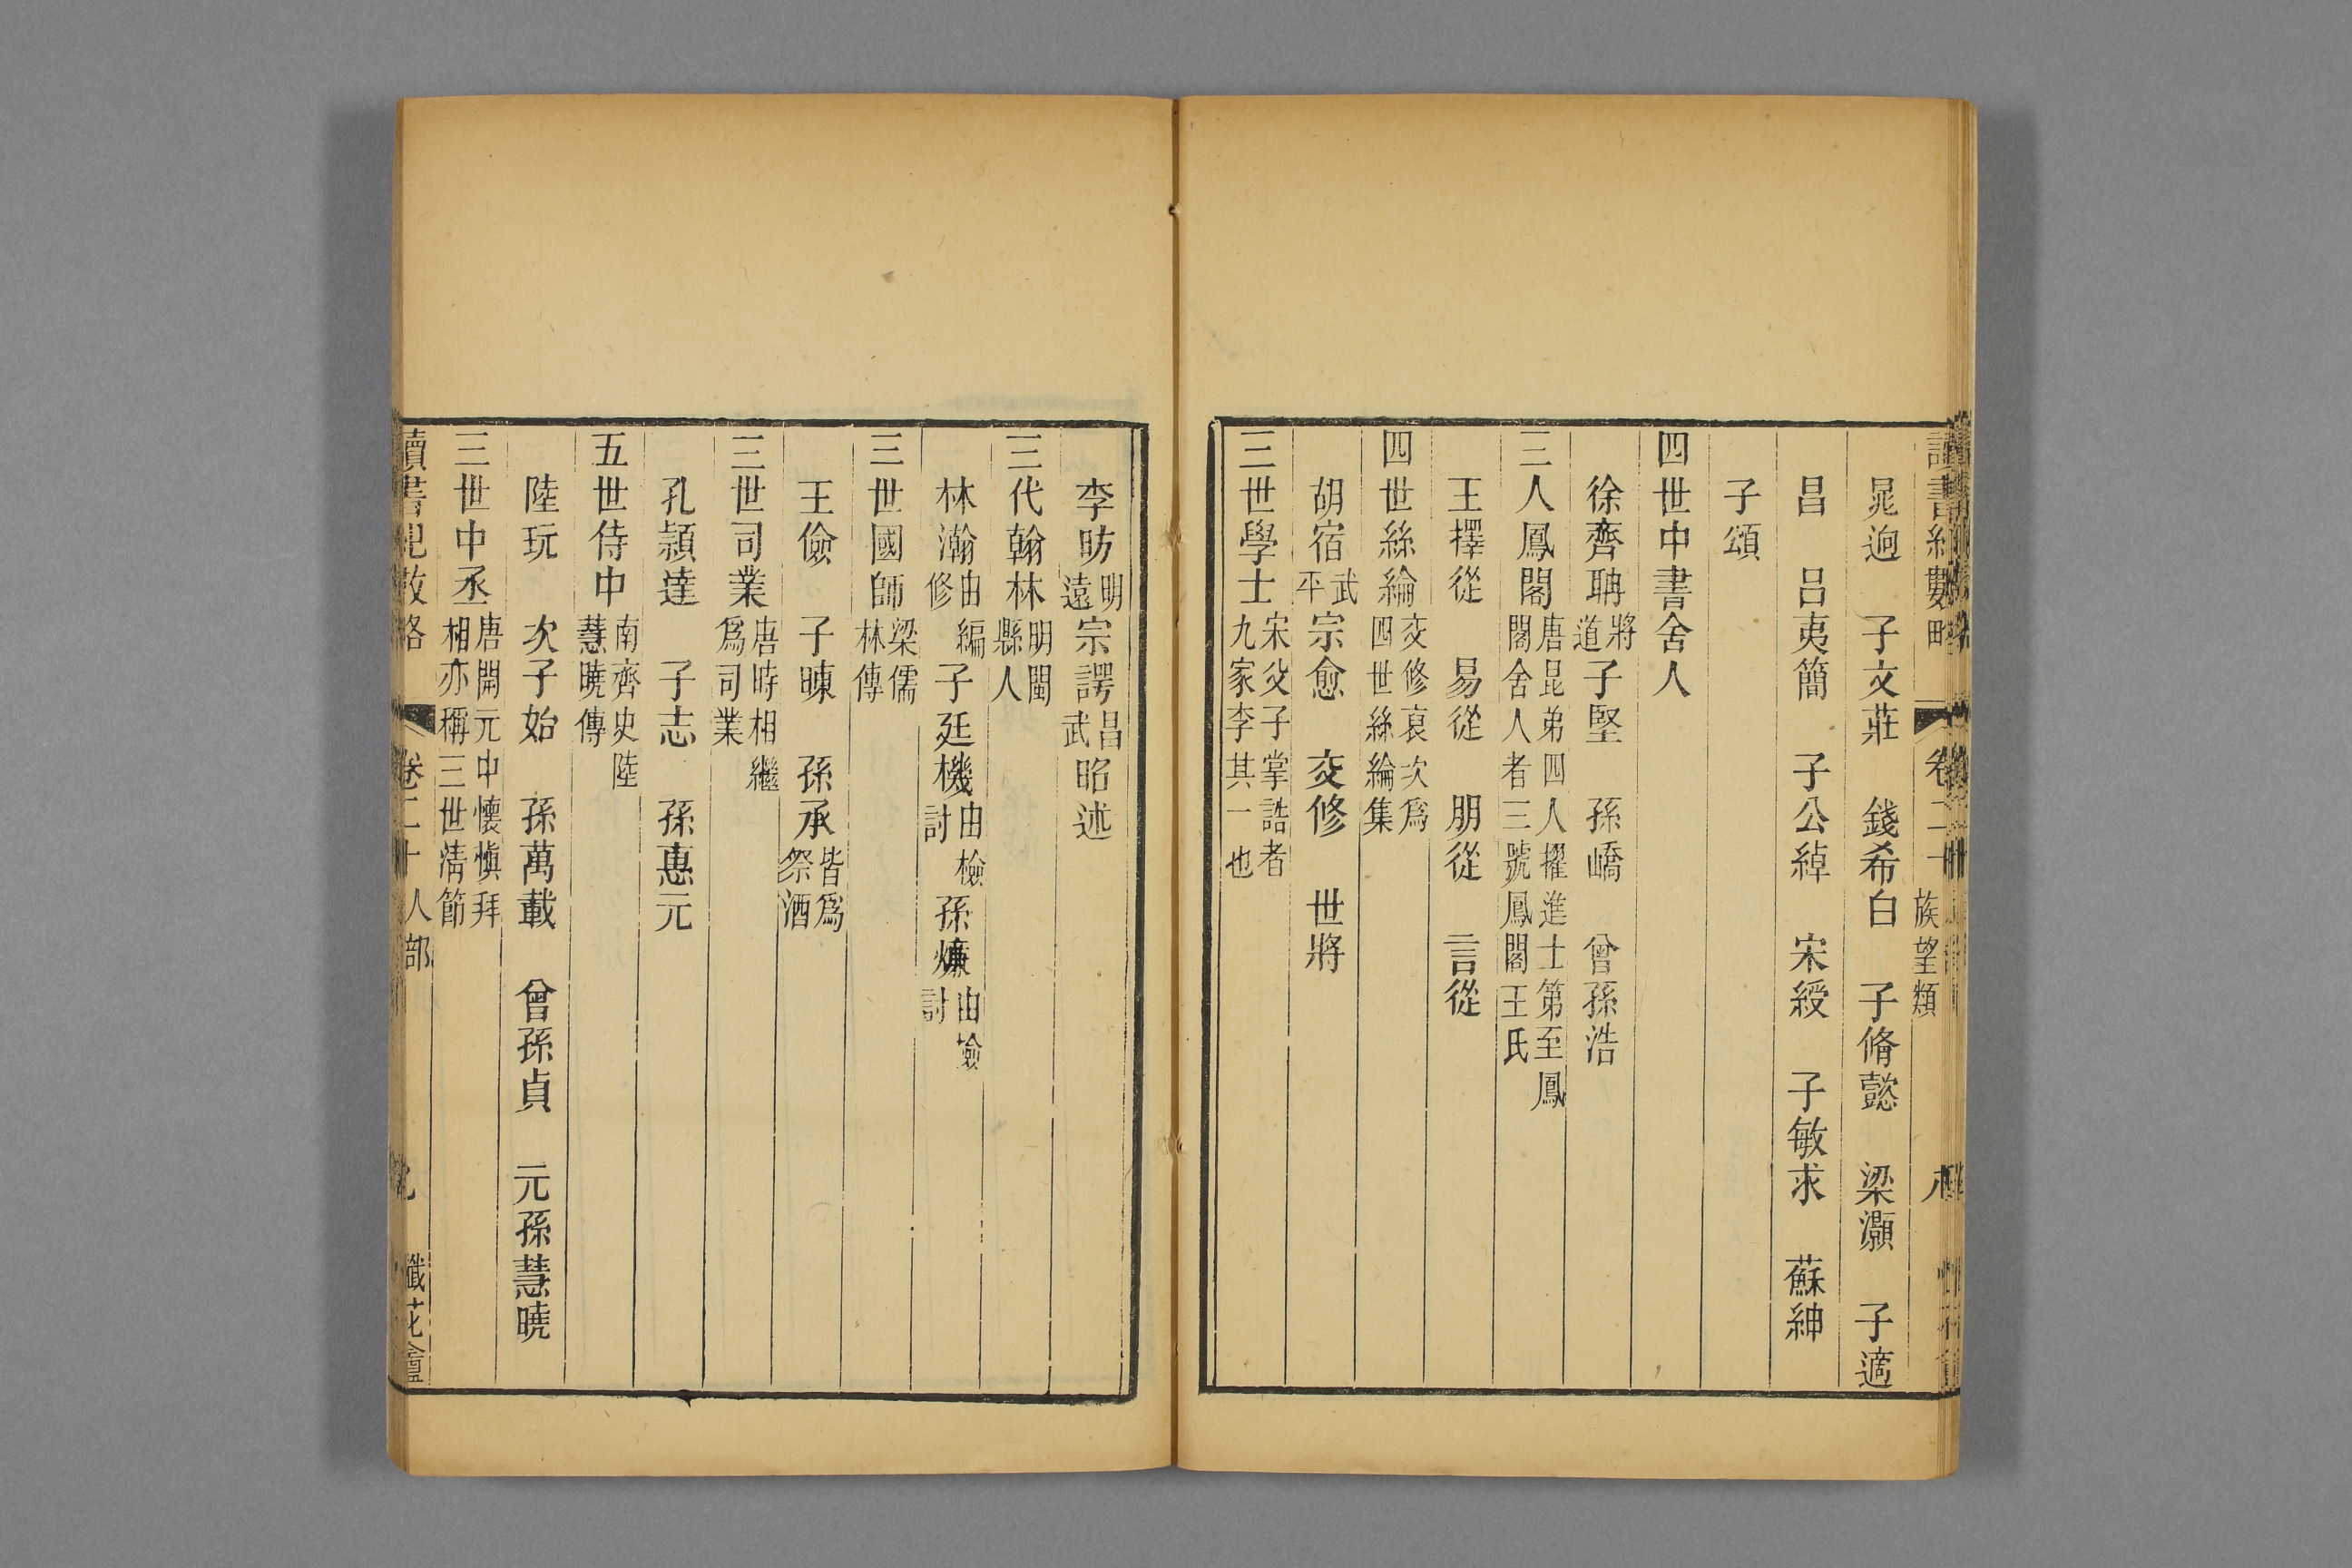 讀書紀數略 卷二十 族望類 八
晁迥 子文莊 錢希白 子脩懿 梁灝 子適
昌 呂夷簡 子公綽 宋綬 子敏求 蘇紳
子頌
四世中書舍人
徐齊聃將道 子堅 孫嶠 曾孫浩
三人鳳閣唐昆弟四人擢進士第至鳳閣舍人者三號鳳閣王氏
王擇從 易從 朋從 言從
四世絲綸交修裒次爲四世絲綸集
胡宿武平 宗愈 交修 世將
三世學士宋父子掌誥者九家李其一也
李昉明遠 宗諤昌武 昭述
三代翰林明閩縣人
林瀚由編修 子廷機由檢討 孫爌由檢討
三世國師梁儒林傳
王儉 子暕 孫承皆爲祭酒
三世司業唐時相繼爲司業
孔穎達 子志 孫惠元
五世侍中南齊史陸慧曉傳
陸玩 次子始 孫萬載 曾孫貞 元孫慧曉
三世中丞唐開元中懷愼拜相亦稱三世淸節
讀書紀數略 卷二十 人部 九 懺花盦